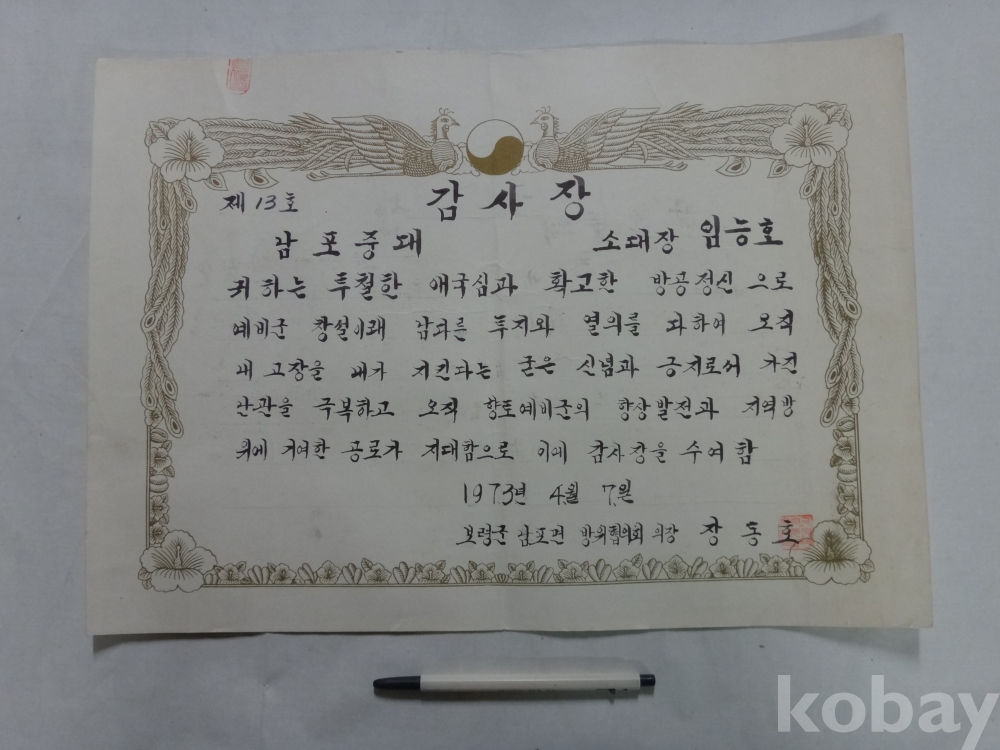 감사장
제 13 호
남포중대 소대장 임능호
귀하는 투철한 애국심과 확고한 방공정신으로
예비군 창설이래 남다른 투지와 열의를 다하여 오직
내 고장을 내가 지킨다는 굳은 신념과 긍지로써 가진
난관을 극복하고 오직 향토예비군의 향상발전과 지역방
위에 기여한 공로가 지대함으로 이에 감사장을 수여함
1973년 4월 7일
보령군 남포면 방위협의회 의장 장동호
kobay